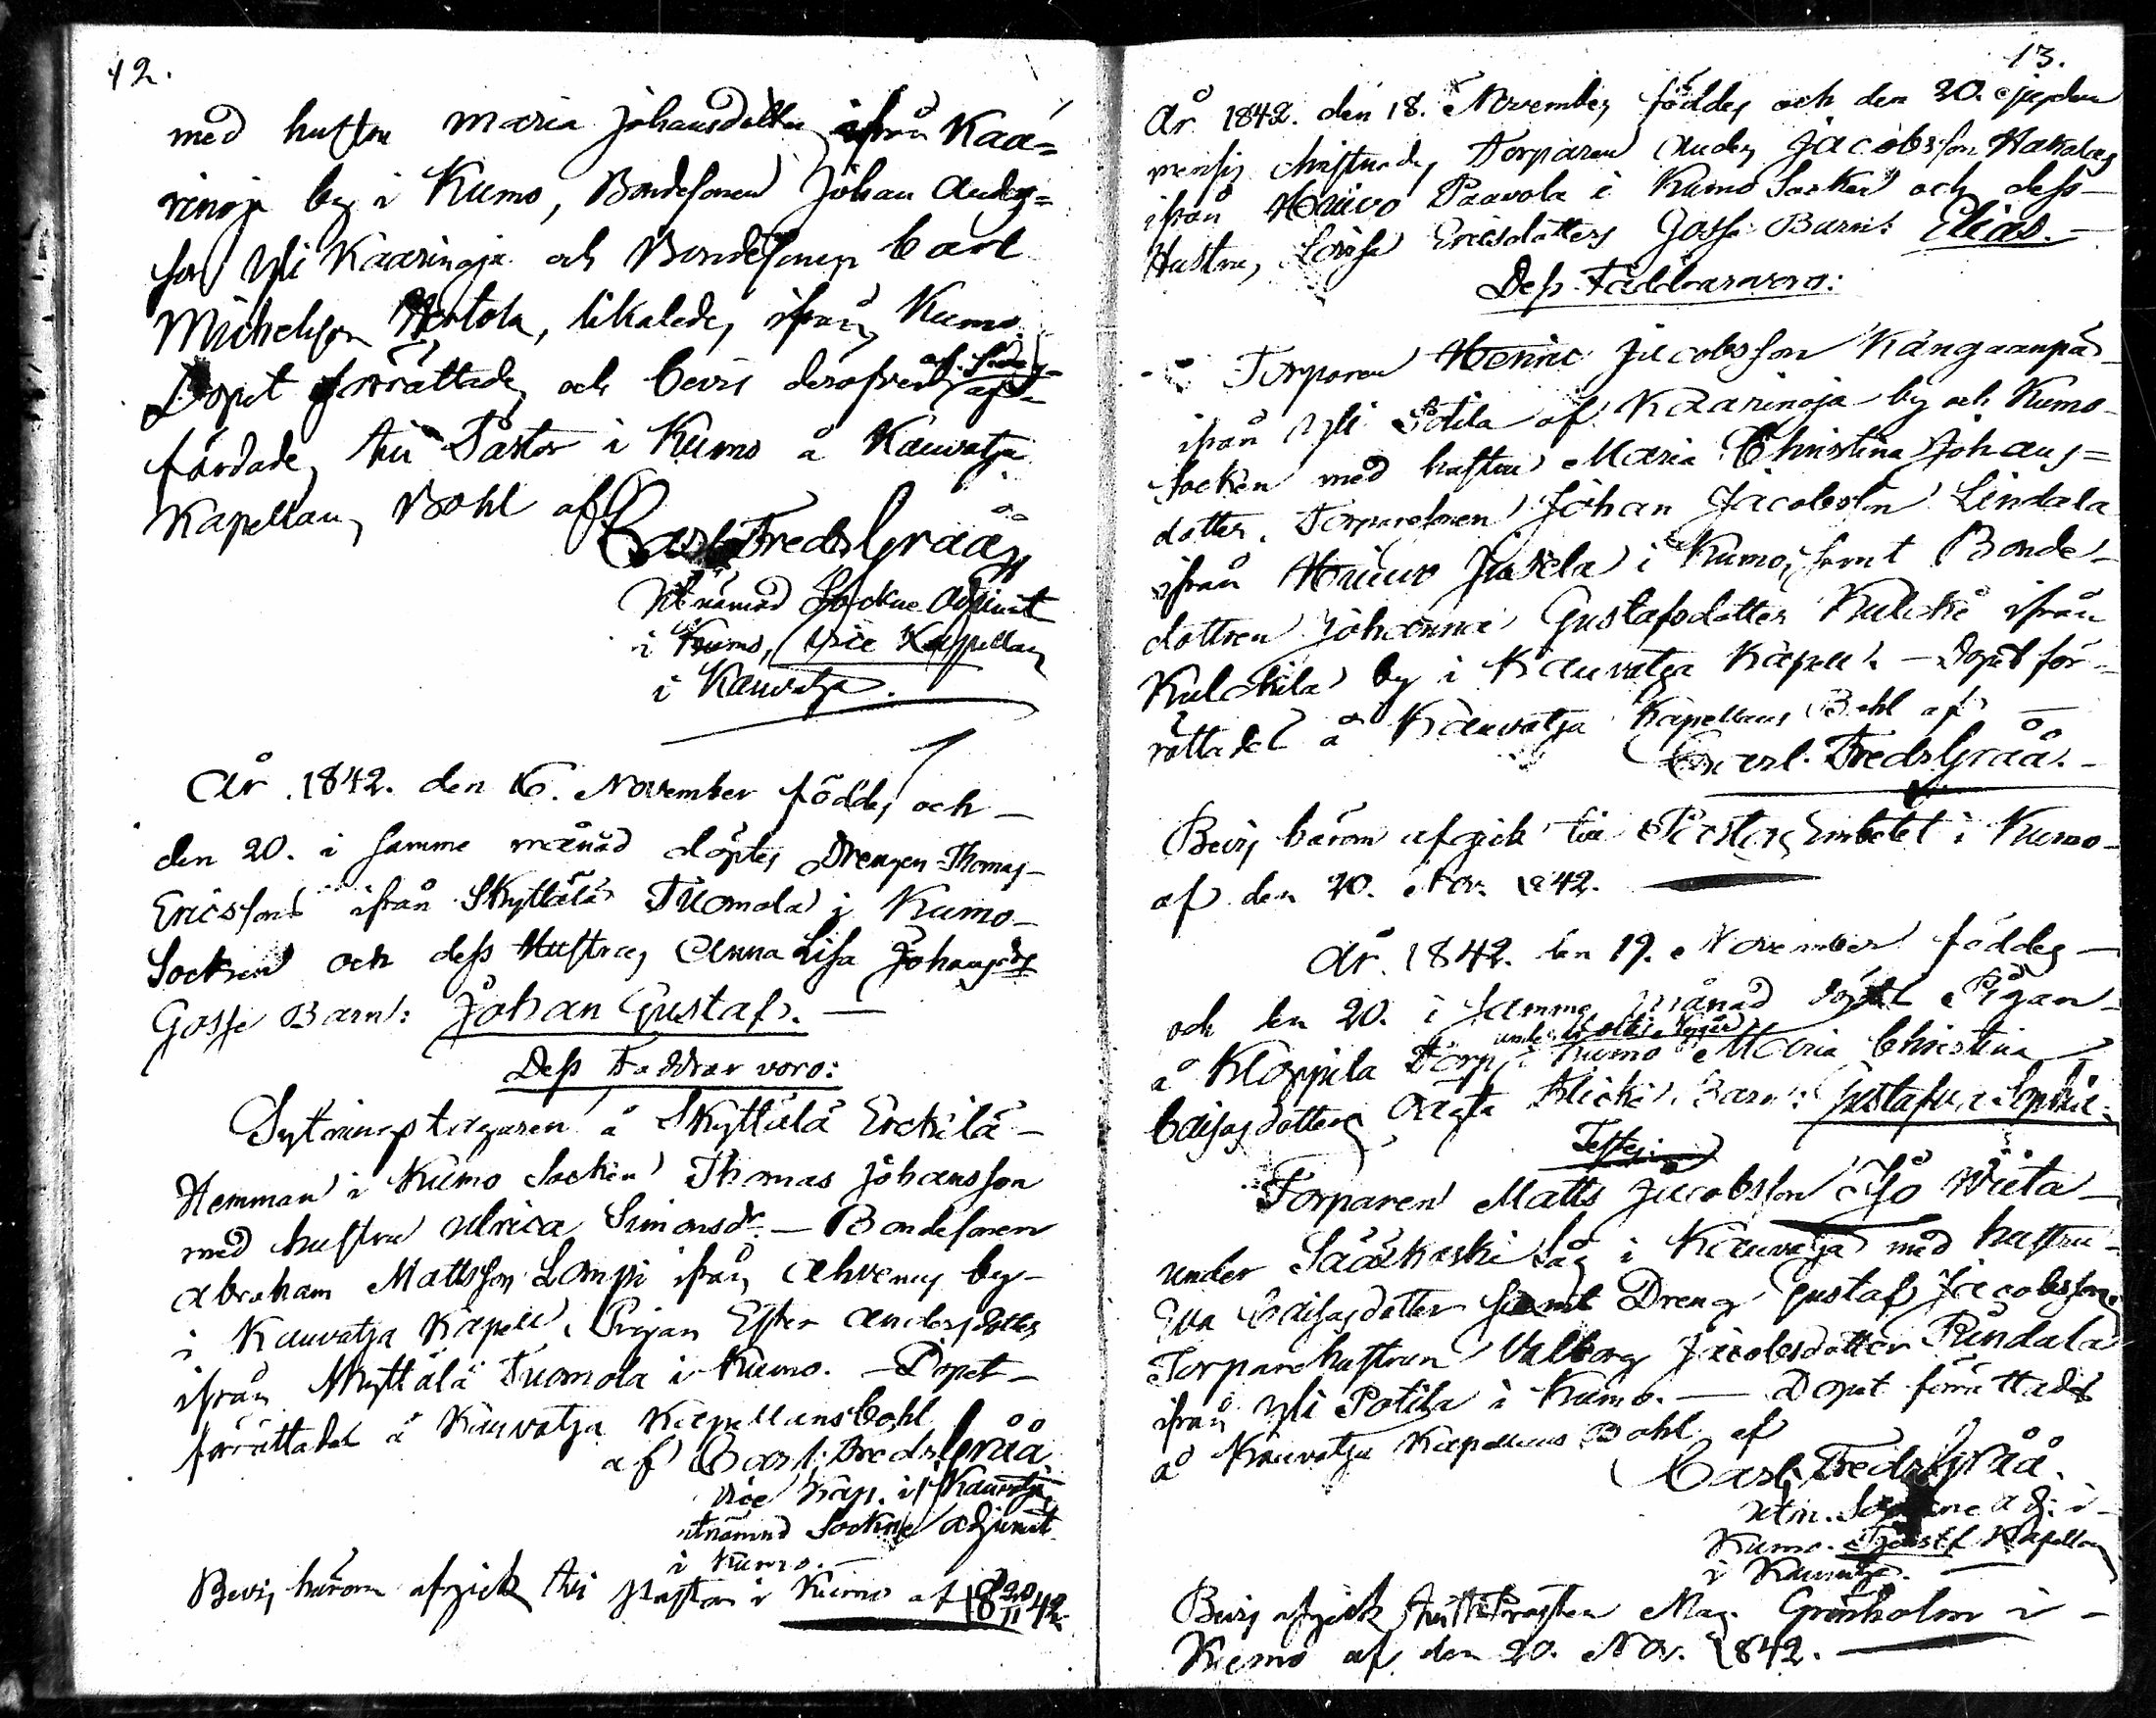 12.
med hustru Maria Johansdotter ifrån Kaa=
rinoja by i Kumo, Bondesonen Johan Anders=
son Yli Kaarinoja och Bondesonen Carl
Michelsson Hertola, likaledes ifrån Kumo
Dopet förrättades och bevis derofver af=
färdades till Pastor i Kumo å Kauvatsa
Kapellans Bohl af
Carl Fredr Gråå
Utnämnd Sockne Adjunct
i Kumo, Vice Kapellan
i Kauvatsa.
År 1842. den 16. November föddes och
den 20. i samme månad döptes Drengen Thomas
Ericssons ifrån Skyttälä Tuomola i Kumo
Socken och dess Hustrus Anna Lisa Johansdr
Gosse Barn: Johan Gustaf.
Dess Faddrar voro:
Sytningstagaren å Skyttälä Erckilä
Hemman i Kumo Socken Thomas Johansson
med hustru Ulrica Simonsdr. — Bondesonen
Abraham Mattsson Lampi ifrån Ahvenus by
i Kauvatsa Kapell. Pigan Ester Andersdotter
ifrån Skyttälä Tuomola i Kumo. — Dopet
förrättades å Kauvatsa Kapellans Bohl
af Carl Fredr Gråå
Vice Kap. i Kauvatsa
utnämnd Sockne Adjunct
i Kumo.
Bevis härom afgick till Pastor i Kumo af 18 20/11 42.
13.
År 1842. den 18. November föddes och den 20. ejusdem
mensis christnades Torparen Anders Jacobsson
ifrån Paavola i Kumo Socken och dess
Hustrus, Lovisa Ericsdotters Gosse Barn: Elias.
Dess Faddrar voro:
Torparen Henric Jacobsson Kangaanpä
ifrån Yli Potila af Kaarinoja by och Kumo
Socken med hustru Maria Christina Johans=
dotter. Torparesonen Johan Jacobsson Lindala
ifrån i Kumo, samt Bonde
dottren Johanna Gustafsdotter Kulckki ifrån
Kulckila by i Kauvatsa Kapell. — Dopet för
rättadet å Kauvatsa Kapellans Bohl af
Carl Fredr Gråå.
Bevis härom afgick till Pastors Embetet i Kumo
af den 20. Nov. 1842.
År 1842. den 19. November föddes
och den 20. i samma månad döptes Pigan
å Kloppila Torp i Kumo Maria Christina
Caisasdotters oägta Flicke Barn: Gustafva Sophia.
Testes:
Torparen Matts Jacobsson Iso Wiita
under Sääxkoski Såg i Kauvatsa med hustru
Eva Caisasdotter samt Dreng Gustaf Jacobsson.
Torparehustrun Valborg Jacobsdotter Rundala
ifrån Yli Potila i Kumo. — Dopet förrättades
å Kauvatsa Kapellans Bohl af
Carl Fredr Gråå.
utn. Sockne Adj. i
Kumo. Tjenstf Kapellan
i Kauvatsa.
Bevis afgick till Prosten Mag. Grönholm i
Kumo af den 20. Nov. 1842.